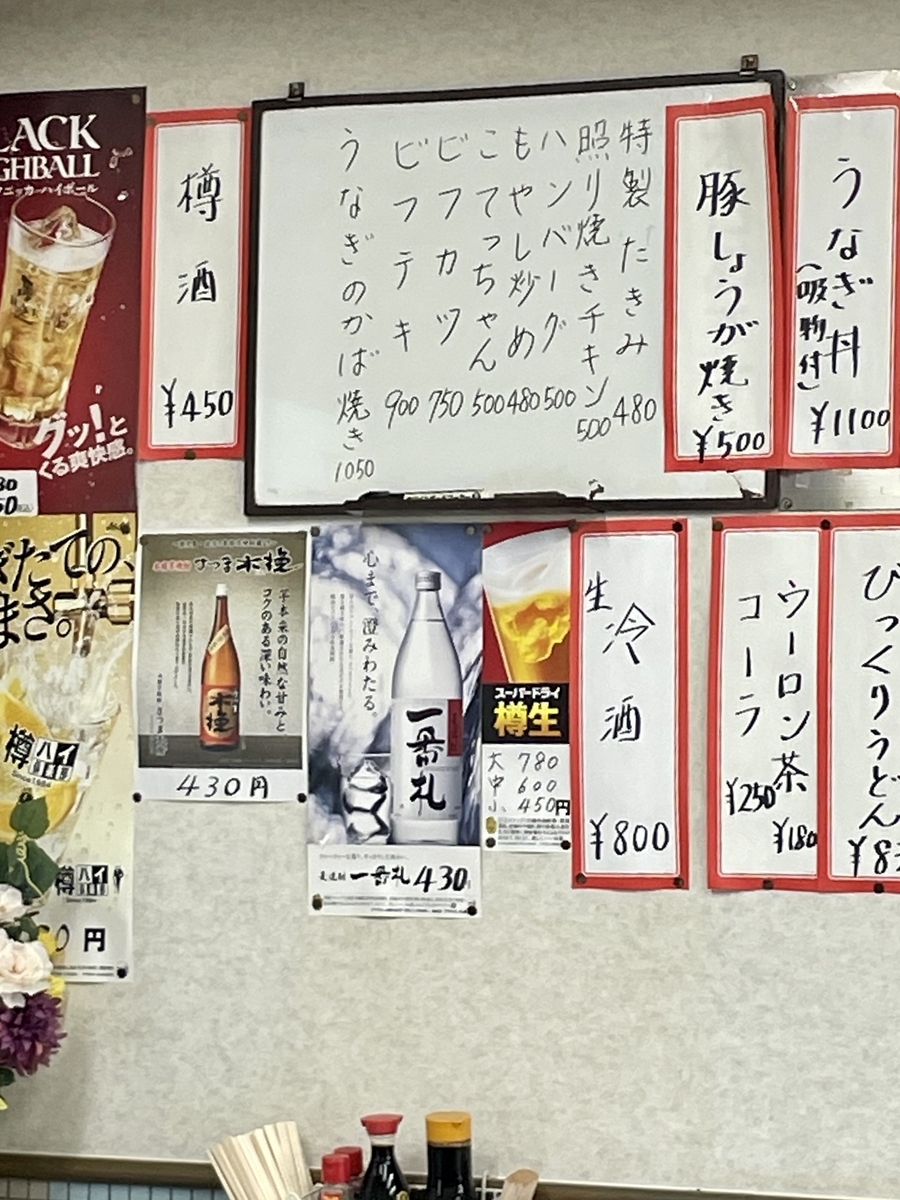 LACK
GHBALL
ニッカ・ハイボール
グッ!と
くる爽快感。
樽酒
¥450
特製たきみ 480
照り焼きチキン 500
ハンバーグ 500
もやし炒め 480
こてっちゃん 500
ビフカツ 750
ビフテキ 900
うなぎのかば焼き 1050
豚しょうが焼き
¥500
うなぎ丼
(吸物付)
¥1100
たての、
まさ。
樽ハイ
樽ハイ
円
さつま木挽
芋本来の自然な甘みと
コクのある深い味わい。
木挽
430円
心まで、澄みわたる。
一番札
一番札 430
スーパードライ
樽生
大 780
中 600
小 450円
生
冷酒
¥800
ウーロン茶
¥180
コーラ
¥250
びっくりうどん
¥8